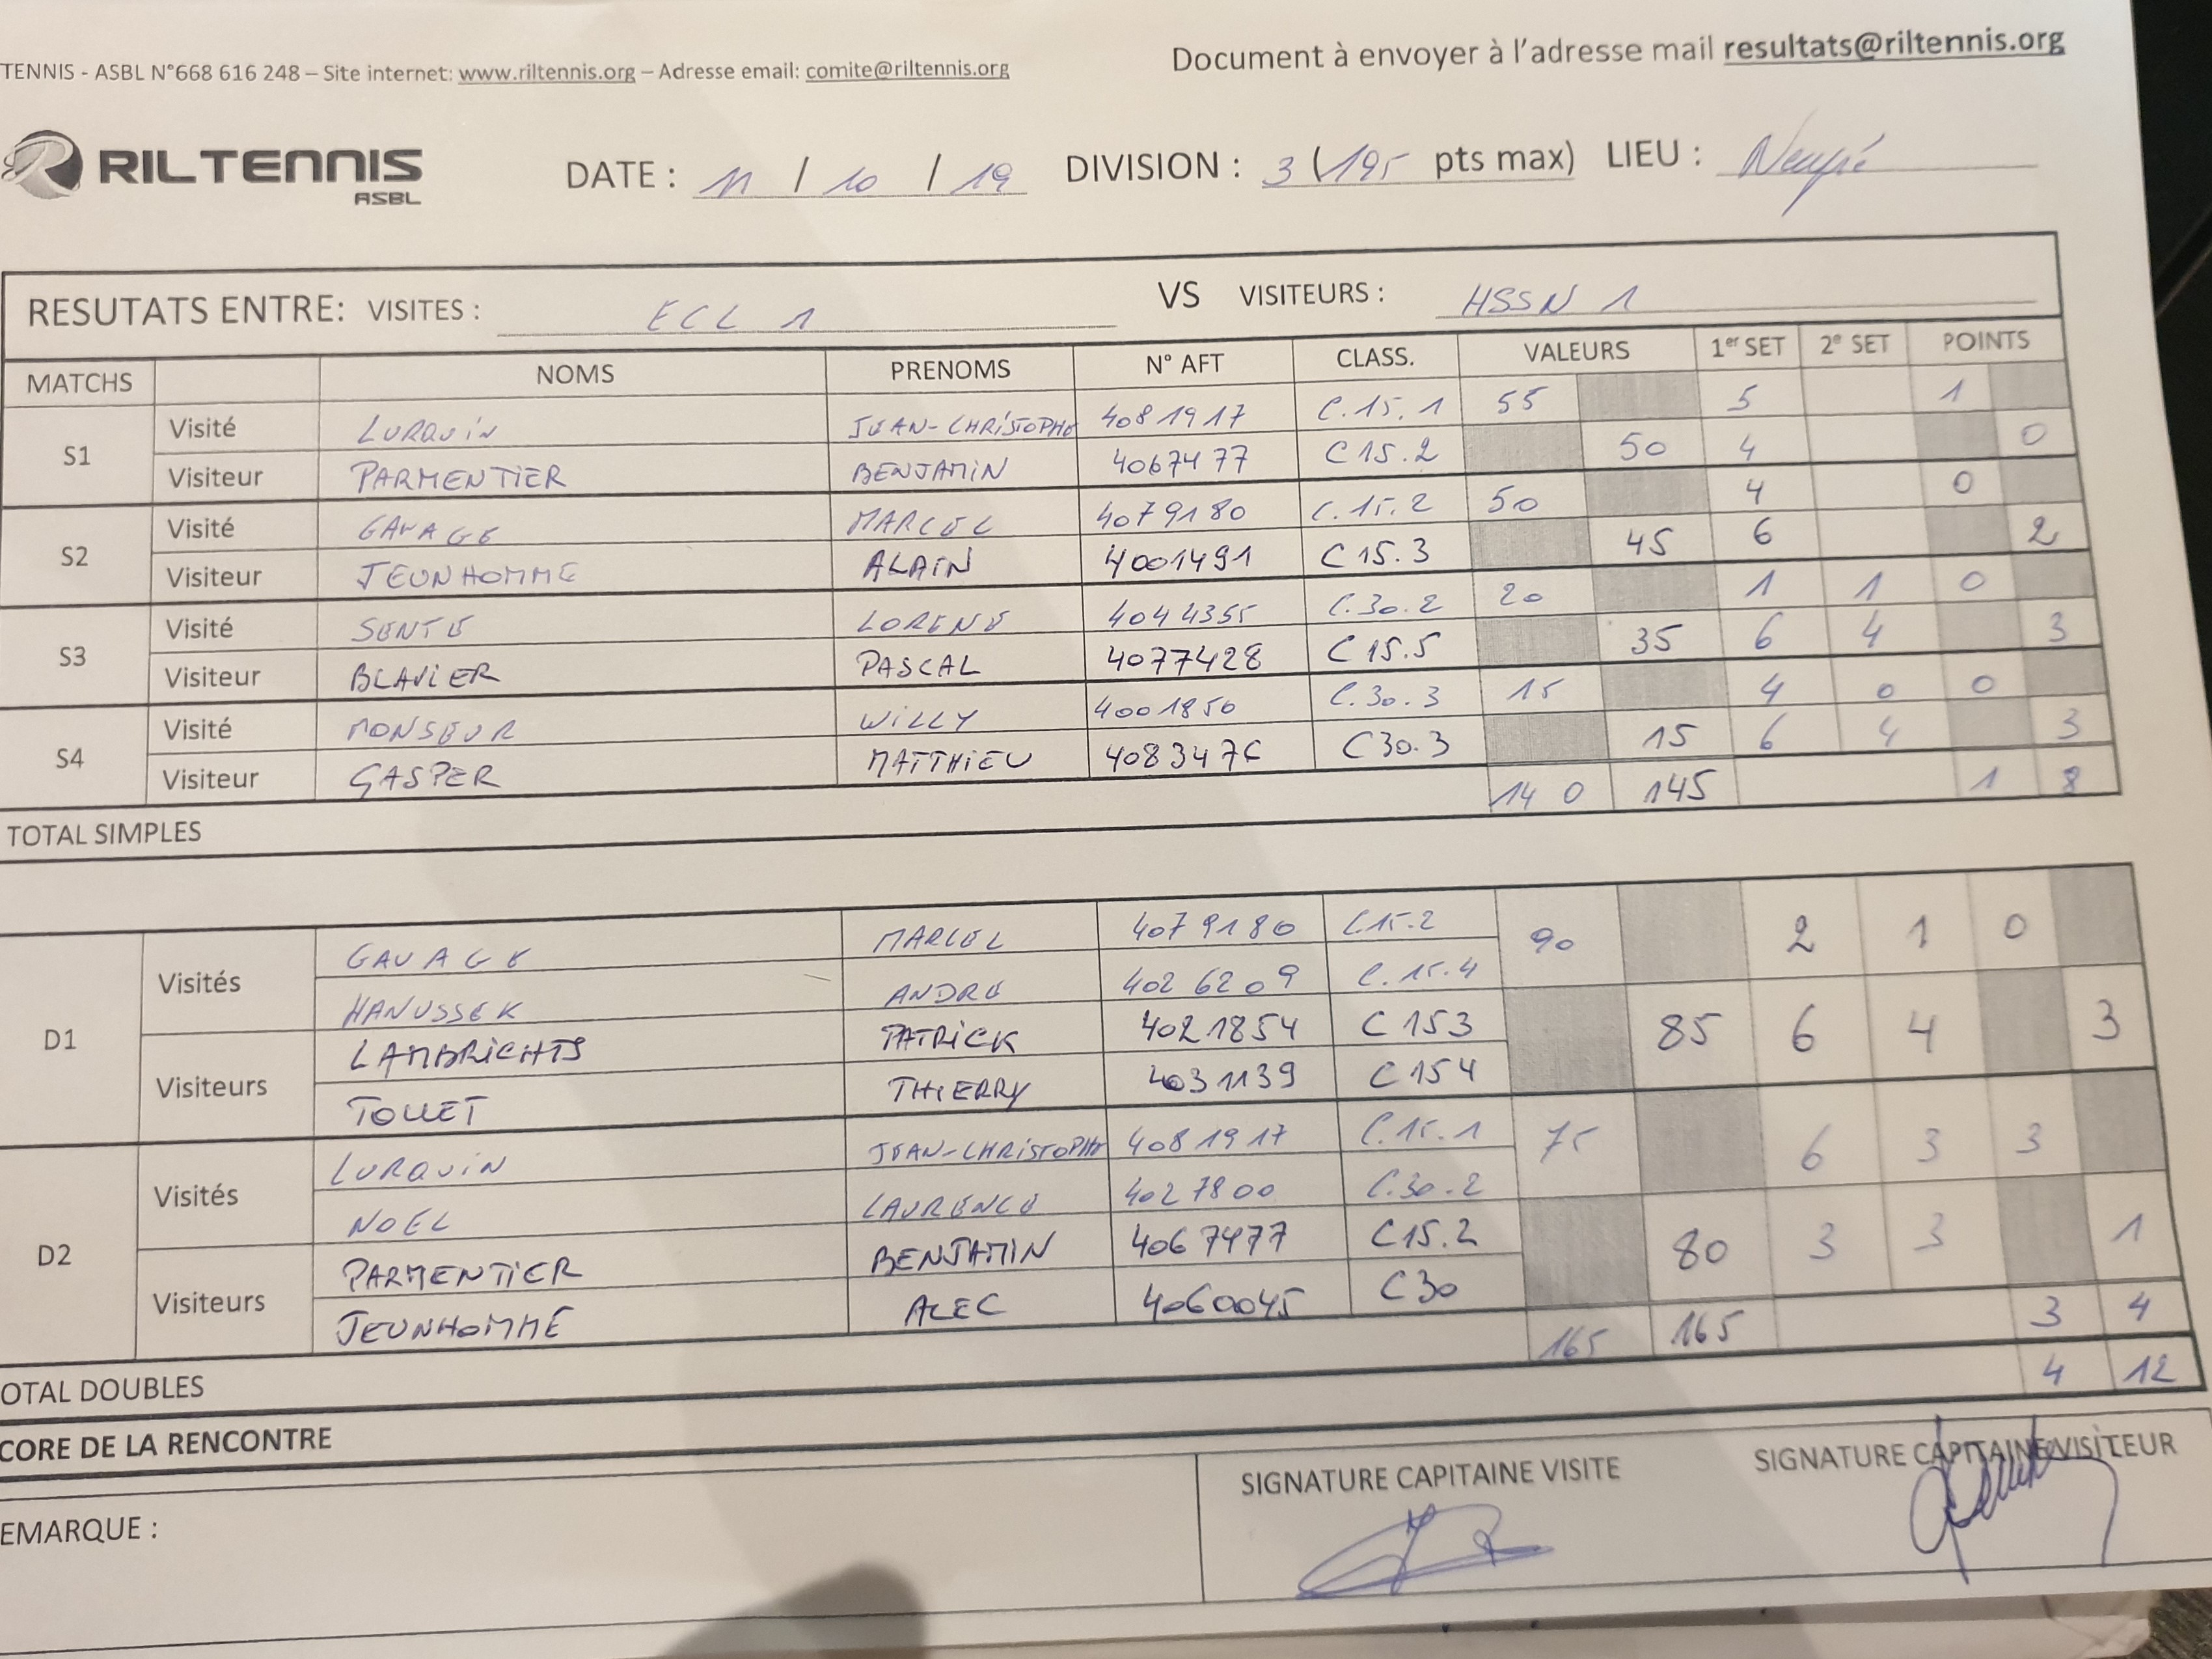 TENNIS - ASBL N°668 616 248 – Site internet: www.riltennis.org – Adresse email: comite@riltennis.org
Document à envoyer à l'adresse mail resultats@riltennis.org
RILTENNIS
ASBL
DATE : 11 / 10 / 19 DIVISION : 3 (195 pts max) LIEU : Neupré
RESUTATS ENTRE: VISITES : ECL 1 VS VISITEURS : HSSN 1
MATCHS NOMS PRENOMS N° AFT CLASS. VALEURS 1er SET 2e SET POINTS
S1
Visité LURQUIN JEAN-CHRISTOPHE 4081917 C.15.1 55 5 1
Visiteur PARMENTIER BENJAMIN 4067477 C15.2 50 4 0
S2
Visité GAVAGE MARCEL 4079180 C.15.2 50 4 0
Visiteur JEUNHOMME ALAIN 4001491 C15.3 45 6 2
S3
Visité SENTE LORENE 4044355 C.30.2 20 1 1 0
Visiteur BLAVIER PASCAL 4077428 C15.5 35 6 4 3
S4
Visité MONSEUR WILLY 4001850 C.30.3 15 4 0 0
Visiteur GASPER MATTHIEU 4083476 C30.3 15 6 4 3
TOTAL SIMPLES 140 145 1 8
D1
Visités GAVAGE MARCEL 4079180 C15.2 90 2 1 0
HANUSSEK ANDRE 4026209 C.15.4
Visiteurs LAMBRICHTS PATRICK 4021854 C153 85 6 4 3
TOLLET THIERRY 4031139 C154
D2
Visités LURQUIN JEAN-CHRISTOPHE 4081917 C.15.1 75 6 3 3
NOEL LAURENCE 4027800 C.30.2
Visiteurs PARMENTIER BENJAMIN 4067477 C15.2 80 3 3 1
JEUNHOMME ALEC 4060045 C30
OTAL DOUBLES 165 165 3 4
CORE DE LA RENCONTRE 4 12
EMARQUE :
SIGNATURE CAPITAINE VISITE
SIGNATURE CAPITAINE VISITEUR